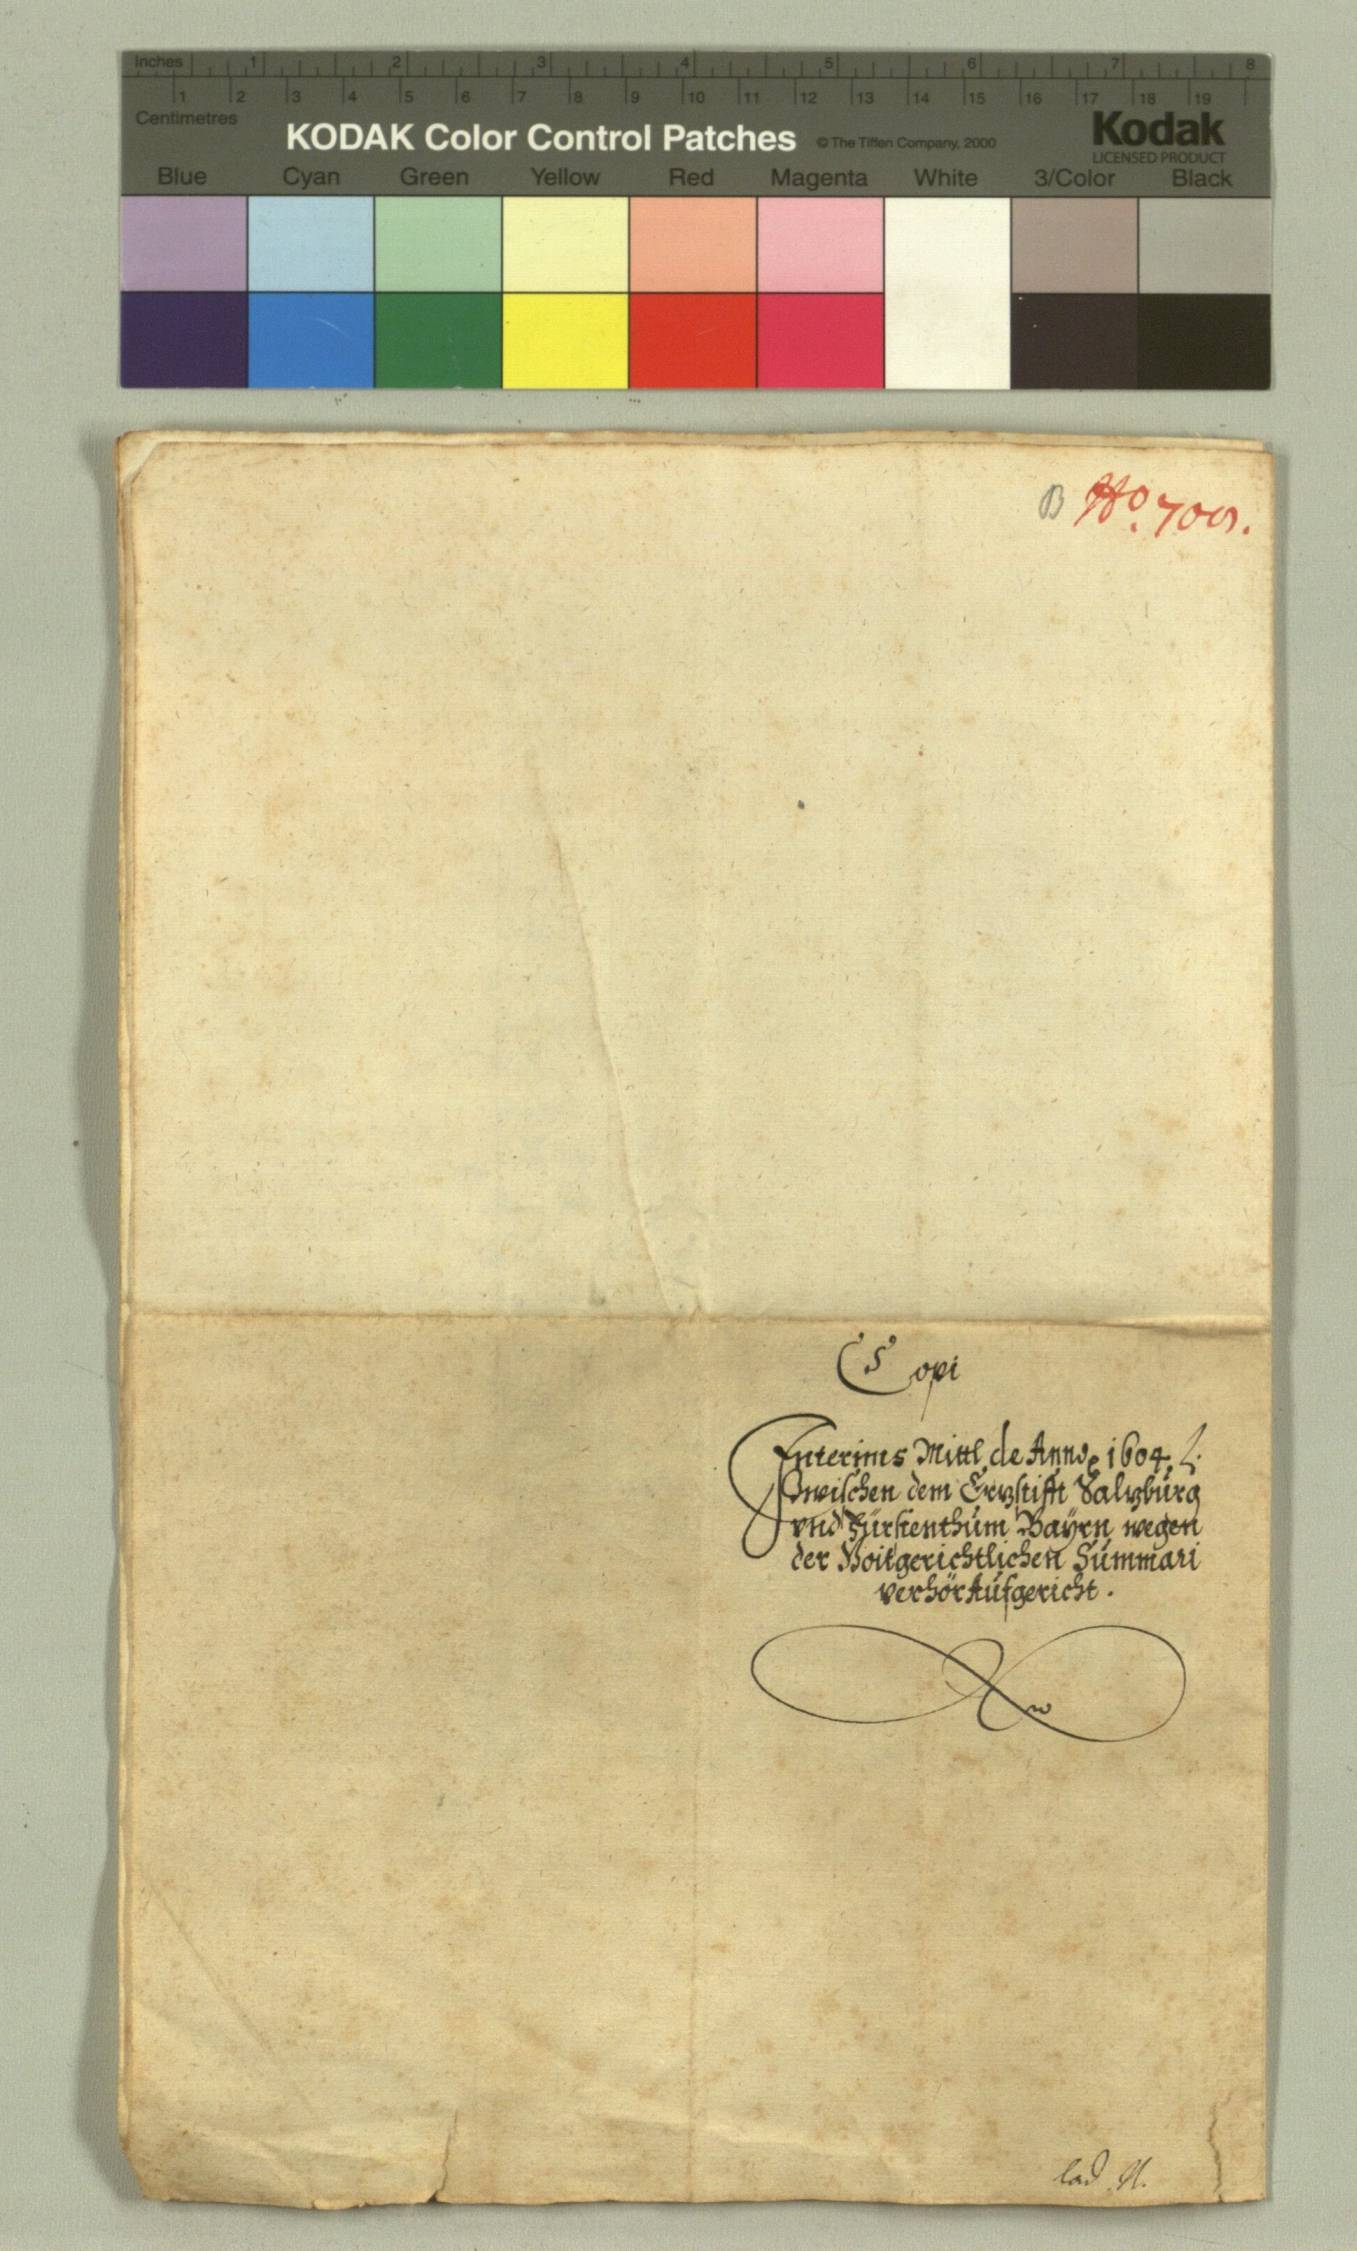 Inches 1 2 3 4 5 6 7 8
1 2 3 4 5 6 7 8 9 10 11 12 13 14 15 16 17 18 19
Centimetres
KODAK Color Control Patches © The Tiffen Company, 2000 Kodak
LICENSED PRODUCT
Blue Cyan Green Yellow Red Magenta White 3/Color Black
B No. 700.
Copi
Interims Mittl de Anno 1604.
Zwischen dem Erzstifft Salzburg
vnd Fürstenthum Bayrn wegen
der Voitgerichtlichen Summari
verhör Aufgericht.
lad